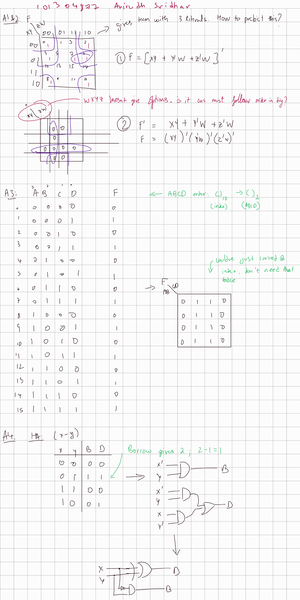 101304922 Anirudh Sridhar
A1.B) F zw
xy 00 01 11 10
00
01
11
10
gives mem with 3 literals. How to predict this?
① F = [xy + y'w + z'w]'
② F' = xy + y'w + z'w
F = (xy)'(y'w)'(z'w)'
A3: A B C D F
0 0 0 0 0 0
1 0 0 0 1 1
2 0 0 1 0 0
3 0 0 1 1 1
4 0 1 0 0 0
5 0 1 0 1 1
6 0 1 1 0 0
7 0 1 1 1 1
8 1 0 0 0 0
9 1 0 0 1 1
10 1 0 1 0 0
11 1 0 1 1 1
12 1 1 0 0 0
13 1 1 0 1 1
14 1 1 1 0 0
15 1 1 1 1 1
← ABCD order ( )10 → ( )2
(index) (ABCD)
index, don't need that
table
F
AB CD
0 1 1 0
0 1 1 0
0 1 1 0
0 1 1 0
A4: (x-y)
x y B D
0 0 0 0
0 1 1 1
1 1 0 0
1 0 0 1
Borrow gives 2, 2-1=1
x'
y
B
x'
y
x
y'
D
x
y
D
B